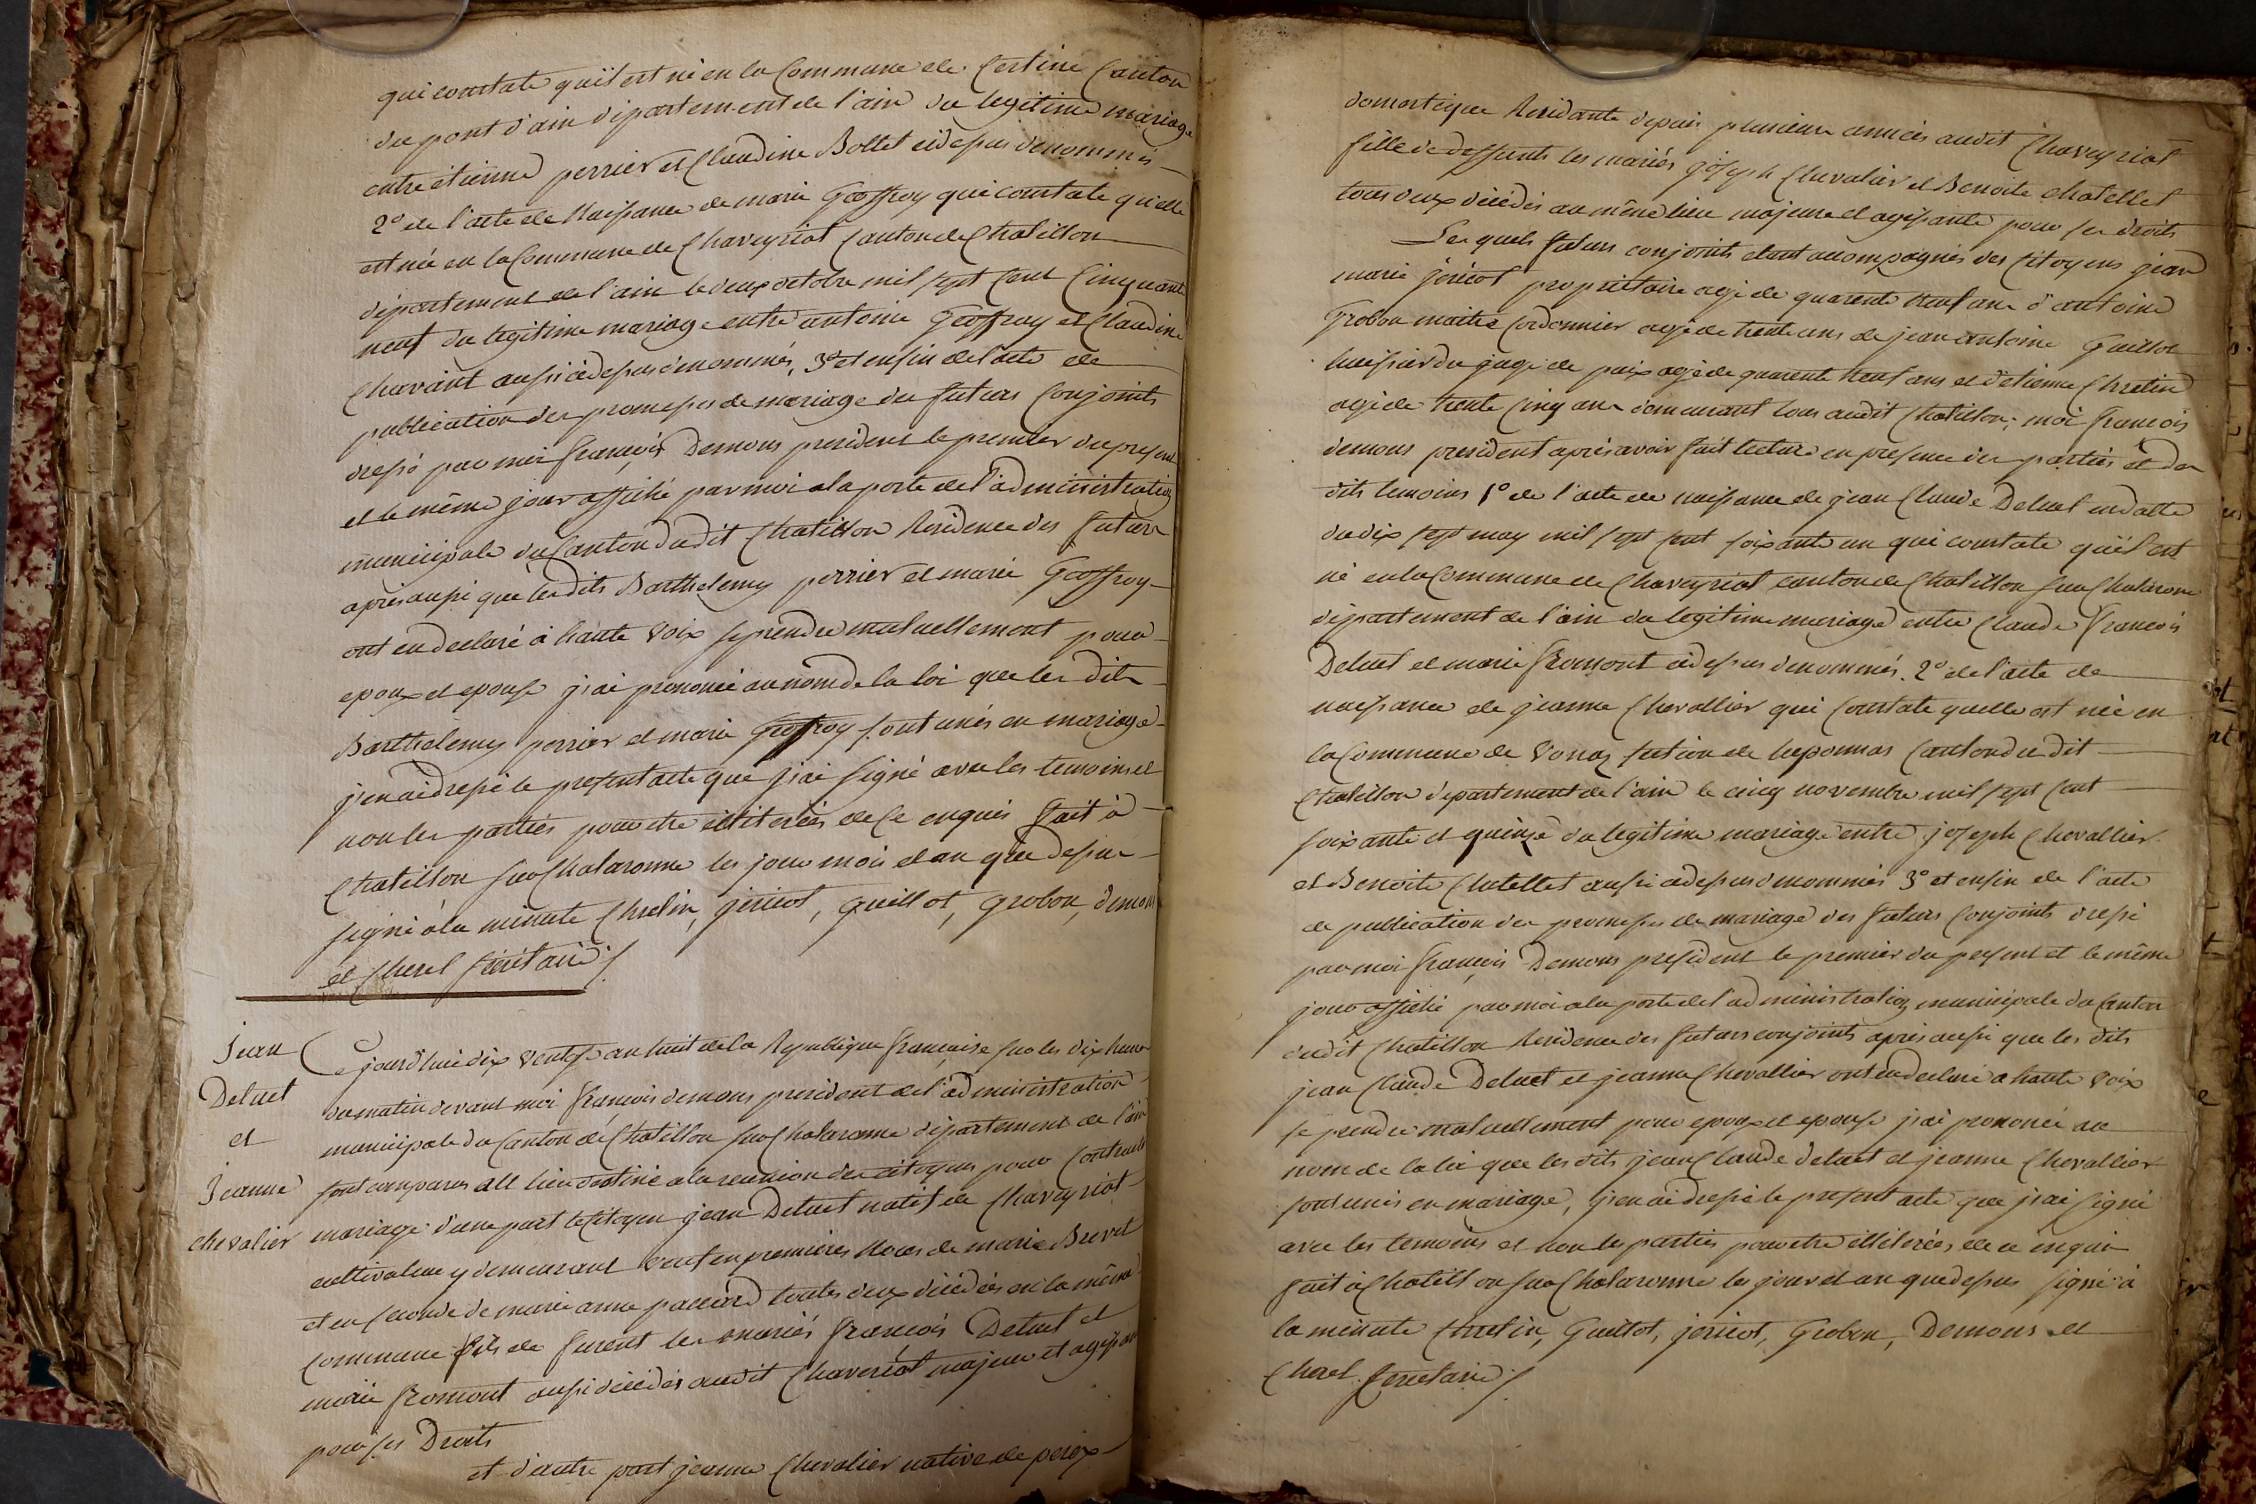 qui constate qu'il est né en la Commune de Certine Canton
du pont d'ain département de l'ain du legitime mariage
entre etienne perrier et Claudine Bollet cidessus denommés
2° de l'acte de Naissance de marie Geoffroy qui constate qu'elle
est née en la Commune de Chaveyriat Canton de Chatillon
département de l'ain le deux octobre mil sept cent Cinquante
neuf du legitime mariage entre antoine Geoffroy et Claudine
Chavant aussi cidessus denommés, 3° et enfin de l'acte de
publication des promesses de mariage des futurs Conjoints
dressé par moi françois Demons president le premier du present
et le même jour affiché par moi a la porte de l'administration
municipale du Canton dudit Chatillon Residence des futurs
après aussi que lesdits Barthelemy perrier et marie Geoffroy
ont eu declaré à haute voix se prendre mutuellement pour
epoux et epouse j'ai prononcé au nom de la loi que les dits
Barthelemy perrier et marie Geoffroy sont unis en mariage
j'en ai dressé le present acte que j'ai signé avec les temoins et
non les parties pour etre illiterées de ce enquis fait à
Chatillon sur Chalaronne les jour mois et an que dessus
signé à la minute Chrelin, jericot, guillot, grobon, demons
et Cherel secrétaire
Jean
Deluet
et
Jeanne
chevalier
Ce jourd'hui dix ventose an huit de la Republique française sur les dix heures
du matin devant moi françois demons president de l'administration
municipale du Canton de Chatillon sur Chalaronne département de l'ain
sont comparus au lieu destiné a la reunion des citoyens pour Contracter
mariage d'une part le Citoyen jean Deluet natif de Chaveyriat
cultivateur y demeurant veuf en premieres Noces de marie Brevet
et en seconde de marie anne paccard toutes deux décédées en la même
commune fils de furent les mariés françois Deluet et
marie fromont aussi décédés audit Chaveriat majeur et agissant
pour ses Droits
et d'autre part jeanne Chevalier native de peroy
domestique Residante depuis plusieurs années audit Chaveyriat
fille de deffunts les mariés joseph Chevalier et Benoite Chatellet
tous deux décédés au même lieu majeure et agissante pour ses droits
Lesquels futurs conjoints etant accompagnés des Citoyens jean
marie jericot propriétaire agé de quarente neuf ans d'antoine
Grobon maitre Cordonnier agé de trente ans de jean antoine Guillot
huissier du juge de paix agé de quarente neuf ans et d'etienne Chrelin
agé de trente Cinq ans demeurant tous audit Chatillon; moi françois
demons president après avoir fait lecture en presence des parties et des
dits temoins 1° de l'acte de naissance de jean Claude Deluet en datte
du dix sept may mil sept cent soixante un qui constate qu'il est
né en la Commune de Chaveyriat canton de Chatillon sur Chalaronne
département de l'ain du legitime mariage entre Claude françois
Deluet et marie fromont cidessus denommés. 2° de l'acte de
naissance de jeanne Chevallier qui Constate quelle est née en
la Commune de Vonnaz section de luponnas Canton du dit
Chatillon département de l'ain le cinq novembre mil sept cent
soixante et quinze du legitime mariage entre joseph Chevallier
et Benoite Chatellet aussi cidessus denommés 3° et enfin de l'acte
de publication des promesses de mariage des futurs Conjoints dressé
par moi françois Demons president le premier du present et le même
jour affiché par moi a la porte de l'administration municipale du Canton
dudit Chatillon Residence des futurs conjoints après aussi que les dits
jean Claude Deluet et jeanne Chevallier ont eu declaré a haute voix
se prendre mutuellement pour epoux et epouse j'ai prononcé au
nom de la loi que les dits jean Claude deluet et jeanne Chevallier
sont unis en mariage, j'en ai dressé le present acte que j'ai signé
avec les temoins et non les parties pour etre illiterées de ce enquis
fait à Chatillon sur Chalaronne les jour et an que dessus signé à
la minute Chrelin, Guillot, jericot, Grobon, Demons et
Cherel secretaire